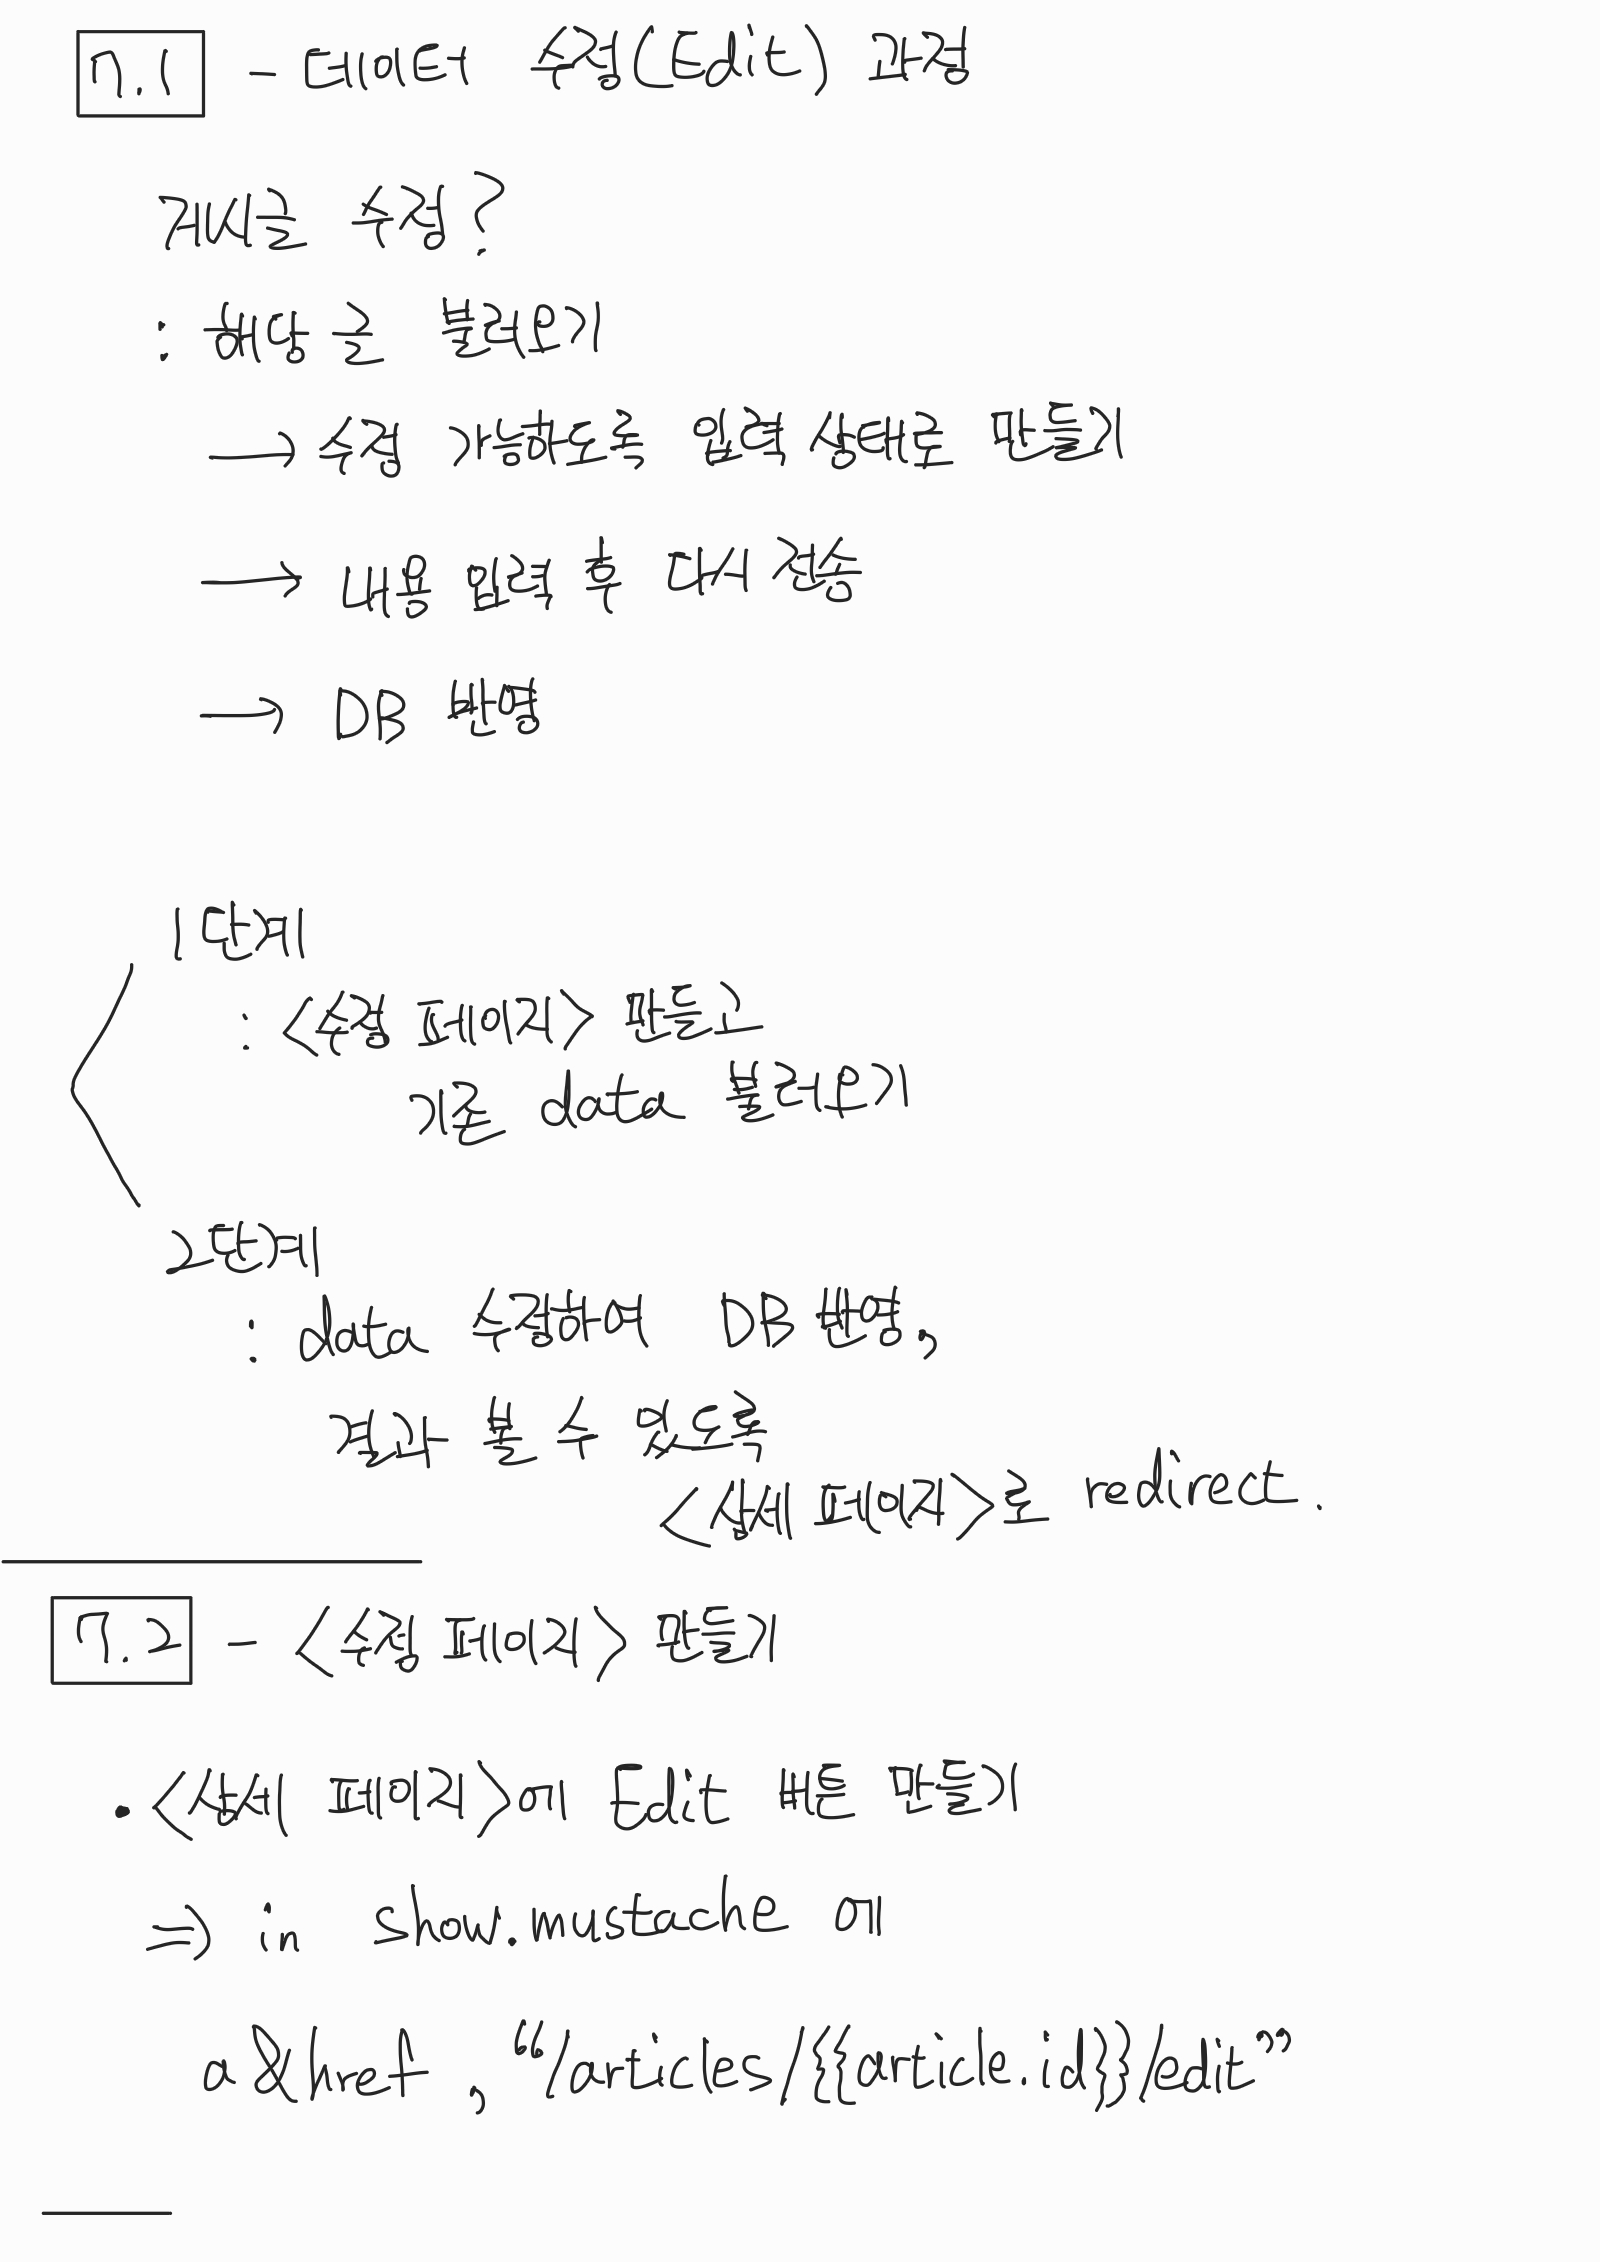 7.1 - 데이터 수정(Edit) 과정
게시글 수정?
: 해당 글 불러오기
→ 수정 가능하도록 입력 상태로 만들기
→ 내용 입력 후 다시 전송
→ DB 반영
1단계
: <수정 페이지> 만들고
기존 data 불러오기
2단계
: data 수정하여 DB 반영,
결과 볼 수 있도록
<상세 페이지>로 redirect.
7.2 - <수정 페이지> 만들기
• <상세 페이지>에 Edit 버튼 만들기
⇒ in show.mustache 에
a & href, “/articles/{{article.id}}/edit”